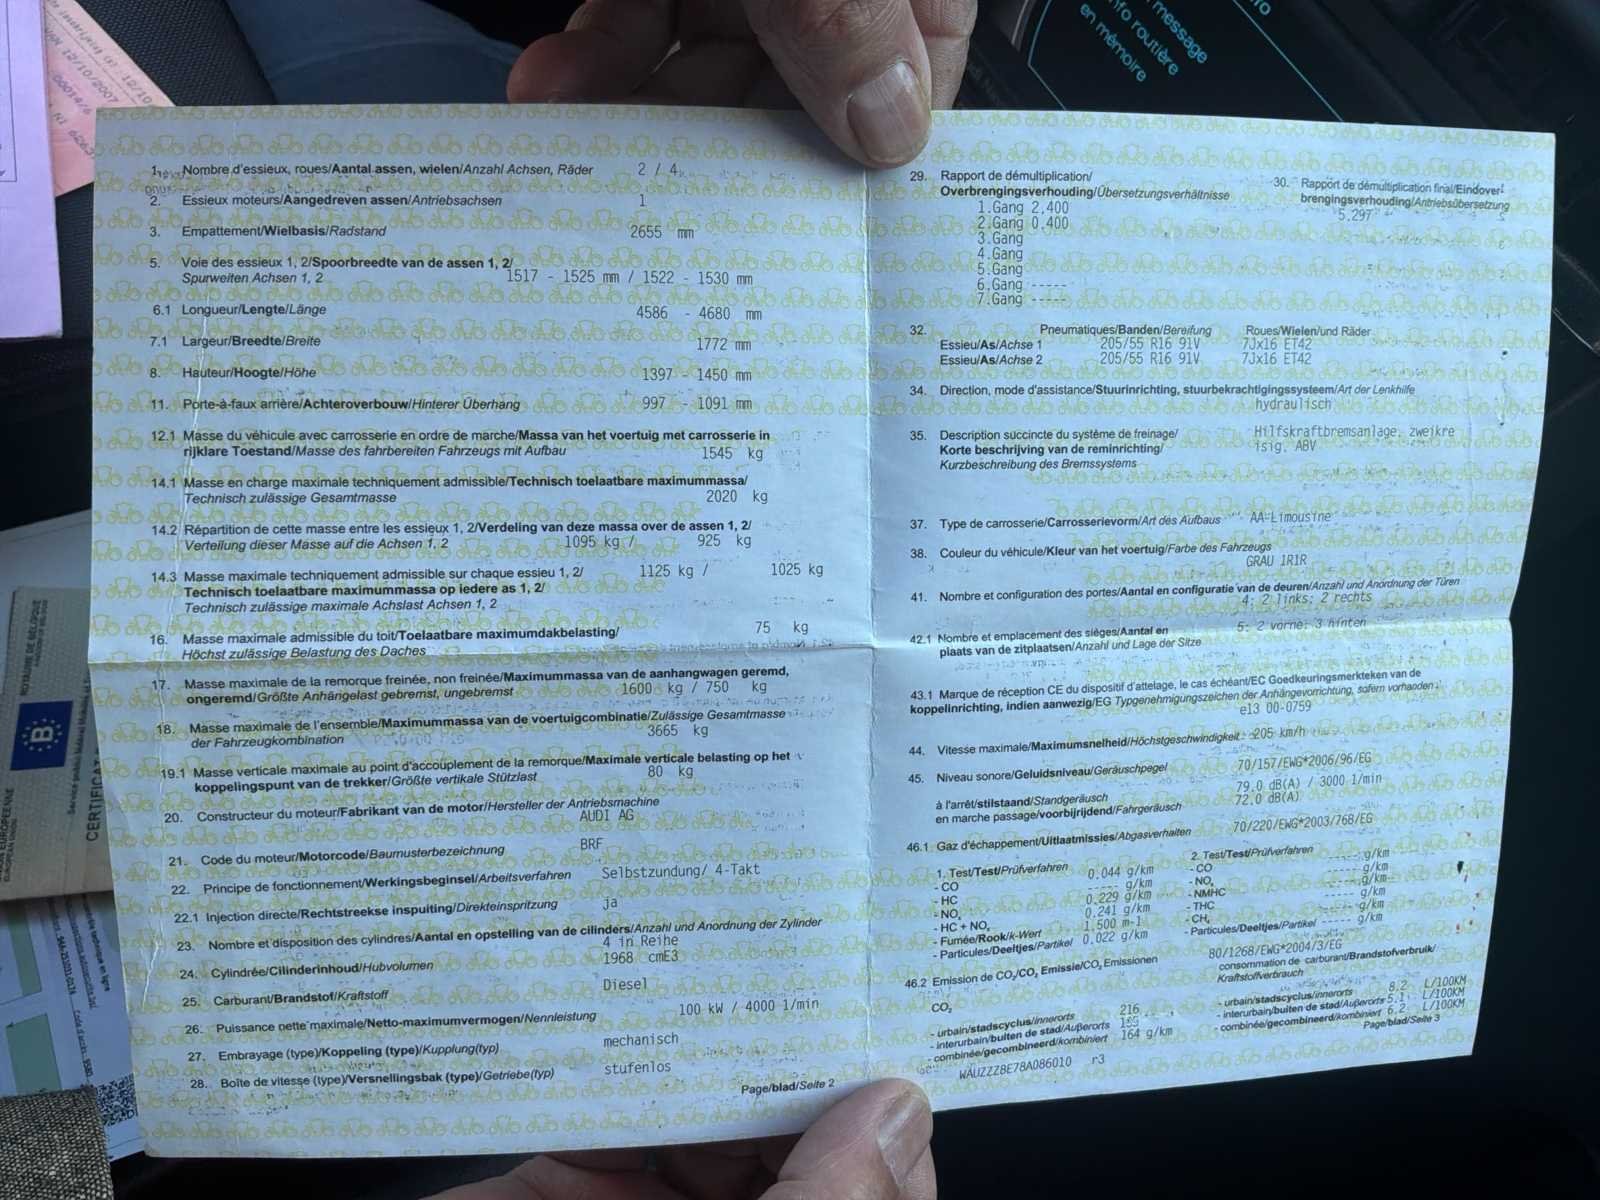 message
info routière
en mémoire
12/10/2007
ROYAUME DE BELGIQUE
B
CERTIFICAT
1. Nombre d'essieux, roues/Aantal assen, wielen/Anzahl Achsen, Räder 2 / 4
2. Essieux moteurs/Aangedreven assen/Antriebsachsen 1
3. Empattement/Wielbasis/Radstand 2655 mm
5. Voie des essieux 1, 2/Spoorbreedte van de assen 1, 2/
Spurweiten Achsen 1, 2 1517 - 1525 mm / 1522 - 1530 mm
6.1 Longueur/Lengte/Länge 4586 - 4680 mm
7.1 Largeur/Breedte/Breite 1772 mm
8. Hauteur/Hoogte/Höhe 1397 - 1450 mm
11. Porte-à-faux arrière/Achteroverbouw/Hinterer Überhang 997 - 1091 mm
12.1 Masse du véhicule avec carrosserie en ordre de marche/Massa van het voertuig met carrosserie in
rijklare Toestand/Masse des fahrbereiten Fahrzeugs mit Aufbau 1545 kg
14.1 Masse en charge maximale techniquement admissible/Technisch toelaatbare maximummassa/
Technisch zulässige Gesamtmasse 2020 kg
14.2 Répartition de cette masse entre les essieux 1, 2/Verdeling van deze massa over de assen 1, 2/
Verteilung dieser Masse auf die Achsen 1, 2 1095 kg / 925 kg
14.3 Masse maximale techniquement admissible sur chaque essieu 1, 2/ 1125 kg / 1025 kg
Technisch toelaatbare maximummassa op iedere as 1, 2/
Technisch zulässige maximale Achslast Achsen 1, 2
16. Masse maximale admissible du toit/Toelaatbare maximumdakbelasting/ 75 kg
Höchst zulässige Belastung des Daches
17. Masse maximale de la remorque freinée, non freinée/Maximummassa van de aanhangwagen geremd,
ongeremd/Größte Anhängelast gebremst, ungebremst 1600 kg / 750 kg
18. Masse maximale de l'ensemble/Maximummassa van de voertuigcombinatie/Zulässige Gesamtmasse
der Fahrzeugkombination 3665 kg
19.1 Masse verticale maximale au point d'accouplement de la remorque/Maximale verticale belasting op het
koppelingspunt van de trekker/Größte vertikale Stützlast 80 kg
20. Constructeur du moteur/Fabrikant van de motor/Hersteller der Antriebsmachine
AUDI AG
21. Code du moteur/Motorcode/Baumusterbezeichnung BRF
22. Principe de fonctionnement/Werkingsbeginsel/Arbeitsverfahren Selbstzundung/ 4-Takt
22.1 Injection directe/Rechtstreekse inspuiting/Direkteinspritzung ja
23. Nombre et disposition des cylindres/Aantal en opstelling van de cilinders/Anzahl und Anordnung der Zylinder
4 in Reihe
24. Cylindrée/Cilinderinhoud/Hubvolumen 1968 cmE3
25. Carburant/Brandstof/Kraftstoff Diesel
26. Puissance nette maximale/Netto-maximumvermogen/Nennleistung 100 kW / 4000 1/min
27. Embrayage (type)/Koppeling (type)/Kupplung(typ) mechanisch
28. Boîte de vitesse (type)/Versnellingsbak (type)/Getriebe(typ) stufenlos
Page/blad/Seite 2
29. Rapport de démultiplication/
Overbrengingsverhouding/Übersetzungsverhältnisse
1.Gang 2,400
2.Gang 0,400
3.Gang
4.Gang
5.Gang
6.Gang -----
7.Gang -----
30. Rapport de démultiplication final/Eindover-
brengingsverhouding/Antriebsübersetzung
5,297
32. Pneumatiques/Banden/Bereifung Roues/Wielen/und Räder
Essieu/As/Achse 1 205/55 R16 91V 7Jx16 ET42
Essieu/As/Achse 2 205/55 R16 91V 7Jx16 ET42
34. Direction, mode d'assistance/Stuurinrichting, stuurbekrachtigingssysteem/Art der Lenkhilfe
hydraulisch
35. Description succincte du système de freinage/ Hilfskraftbremsanlage, zweikre
Korte beschrijving van de reminrichting/ isig. ABV
Kurzbeschreibung des Bremssystems
37. Type de carrosserie/Carrosserievorm/Art des Aufbaus AA-Limousine
38. Couleur du véhicule/Kleur van het voertuig/Farbe des Fahrzeugs
GRAU 1R1R
41. Nombre et configuration des portes/Aantal en configuratie van de deuren/Anzahl und Anordnung der Türen
4; 2 links; 2 rechts
42.1 Nombre et emplacement des sièges/Aantal en 5; 2 vorne; 3 hinten
plaats van de zitplaatsen/Anzahl und Lage der Sitze
43.1 Marque de réception CE du dispositif d'attelage, le cas échéant/EC Goedkeuringsmerkteken van de
koppelinrichting, indien aanwezig/EG Typgenehmigungszeichen der Anhängevorrichtung, sofern vorhanden
e13 00-0759
44. Vitesse maximale/Maximumsnelheid/Höchstgeschwindigkeit 205 km/h
45. Niveau sonore/Geluidsniveau/Geräuschpegel 70/157/EWG*2006/96/EG
à l'arrêt/stilstaand/Standgeräusch 79.0 dB(A) / 3000 1/min
en marche passage/voorbijrijdend/Fahrgeräusch 72.0 dB(A)
46.1 Gaz d'échappement/Uitlaatmissies/Abgasverhalten 70/220/EWG*2003/768/EG
1. Test/Test/Prüfverfahren
- CO 0.044 g/km
- HC ----- g/km
- NOx 0.229 g/km
- HC + NOx 0.241 g/km
- Fumée/Rook/k-Wert 1.500 m-1
- Particules/Deeltjes/Partikel 0.022 g/km
2. Test/Test/Prüfverfahren
- CO ----- g/km
- NOx ----- g/km
- NMHC ----- g/km
- THC ----- g/km
- CH4 ----- g/km
- Particules/Deeltjes/Partikel ----- g/km
46.2 Emission de CO2/CO2 Emissie/CO2 Emissionen 80/1268/EWG*2004/3/EG
CO2
- urbain/stadscyclus/innerorts 216
- interurbain/buiten de stad/Außerorts
- combinée/gecombineerd/kombiniert 164 g/km
consommation de carburant/Brandstofverbruik/
Kraftstoffverbrauch
- urbain/stadscyclus/innerorts 8.2 L/100KM
- interurbain/buiten de stad/Außerorts 5.1 L/100KM
- combinée/gecombineerd/kombiniert 6.2 L/100KM
Page/blad/Seite 3
WAUZZZ8E78A086010 r3